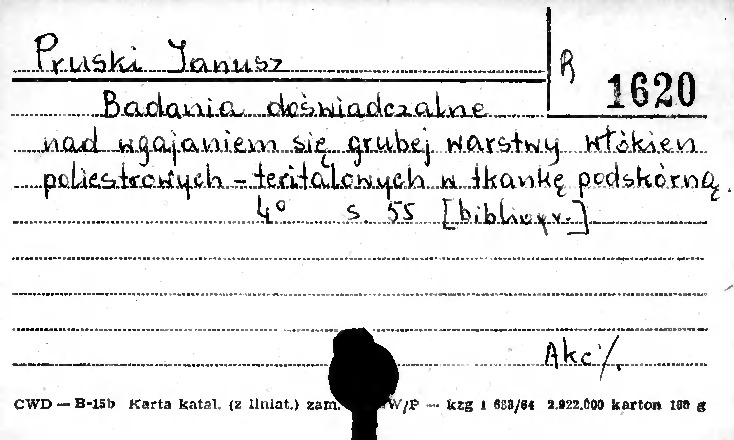 Pruski Janusz
R 1620
Badania doświadczalne
nad wgajaniem się grubej warstwy włókien
poliestrowych - teritalowych w tkankę podskórną.
4° s. 55 [bibliogr.]
Akc/.
CWD — B-15b Karta katal. (z liniat.) zam. W/P — kzg 1 683/64 2.922.000 karton 180 g